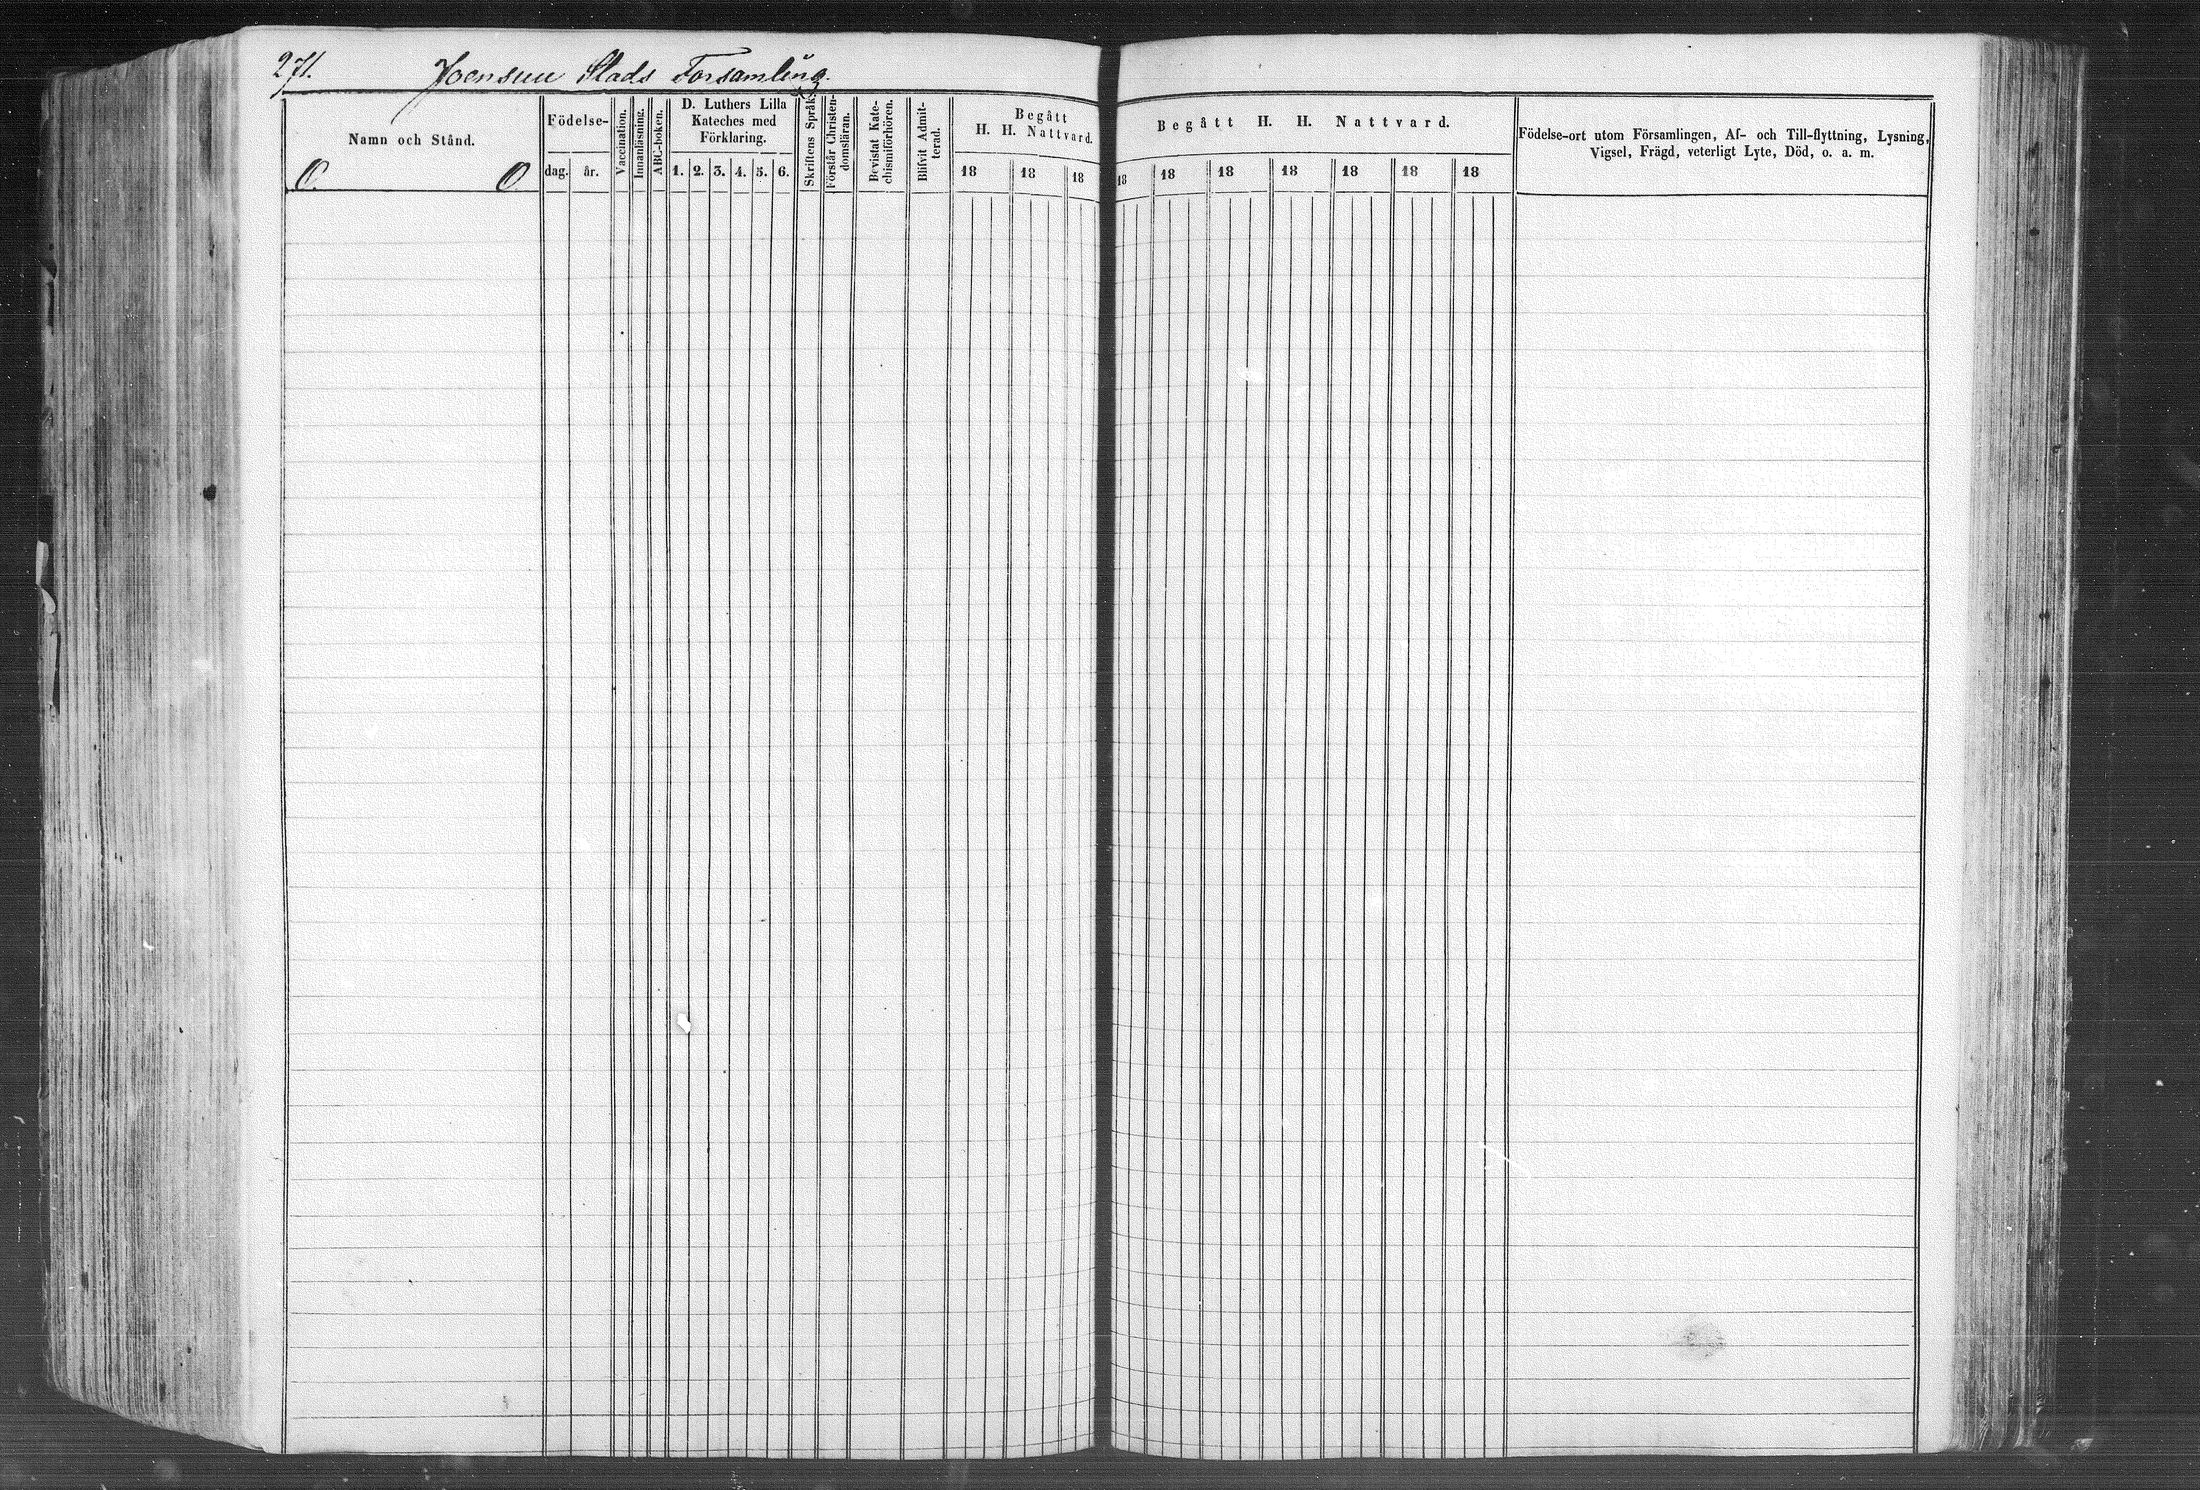 271. Joensuu Stads Forsamling.
Namn och Stånd.
O. O
Födelse-
dag. år.
Vaccination.
Innanläsning.
ABC-boken.
D. Luthers Lilla
Kateches med
Förklaring.
1. 2. 3. 4. 5. 6.
Skriftens Språk.
Förstår Christen-
domsläran.
Bevistat Kate-
chismiförhören.
Blifvit Admit-
terad.
Begått
H. H. Nattvard.
18 18 18
Begått H. H. Nattvard.
18 18 18 18 18 18 18
Födelse-ort utom Församlingen, Af- och Till-flyttning, Lysning,
Vigsel, Frägd, veterligt Lyte, Död, o. a. m.